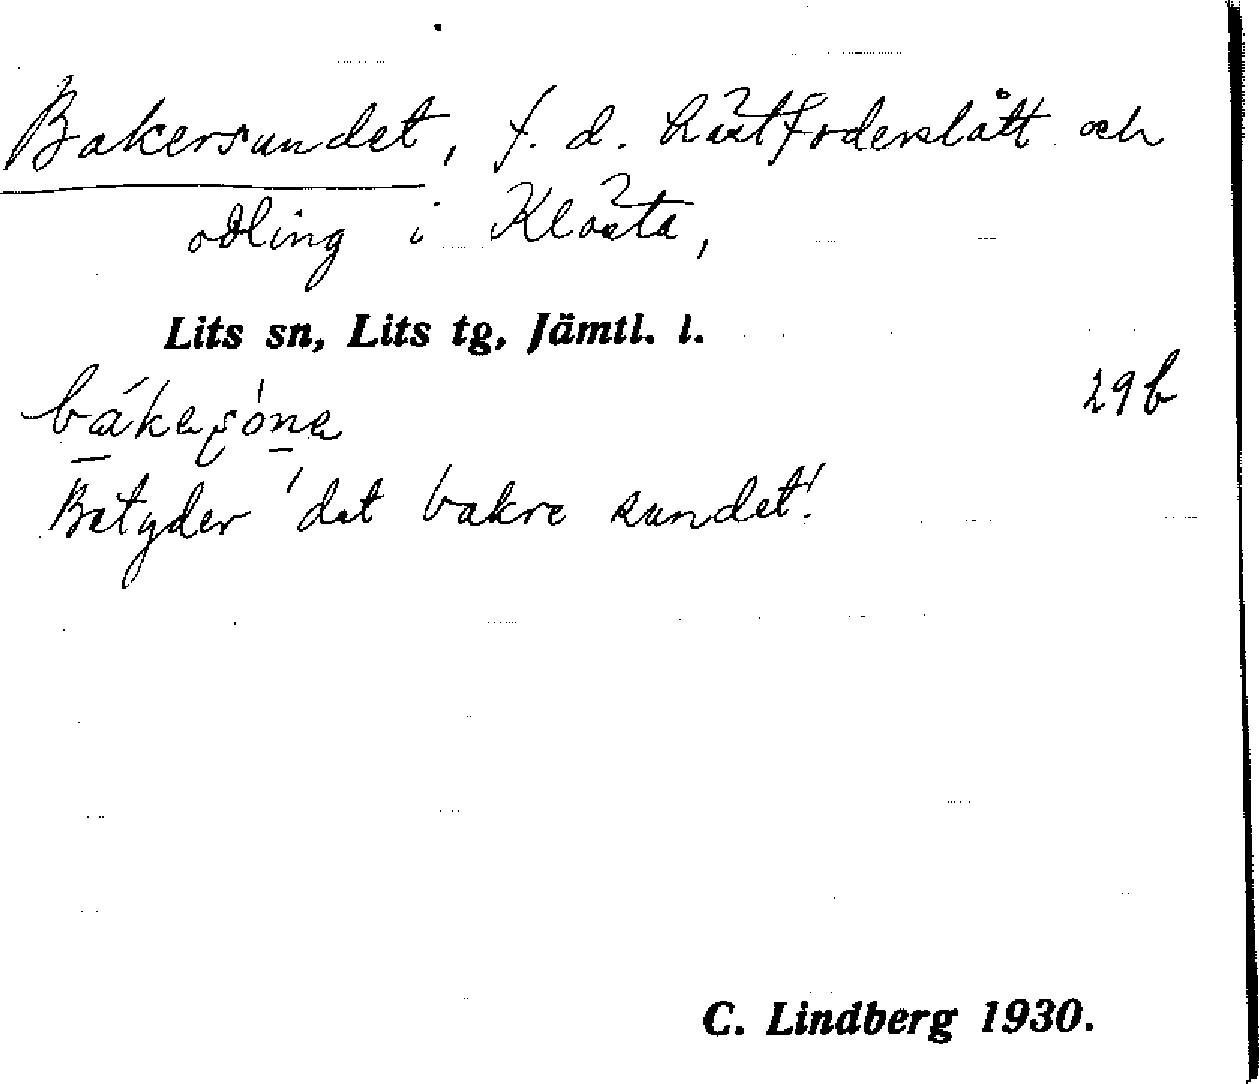 Bakersundet, f. d. hästfoderslått och
odling i Klösta,
Lits sn, Lits tg, Jämtl. l.
29b
Betyder 'det bakre sundet'.
C. Lindberg 1930.